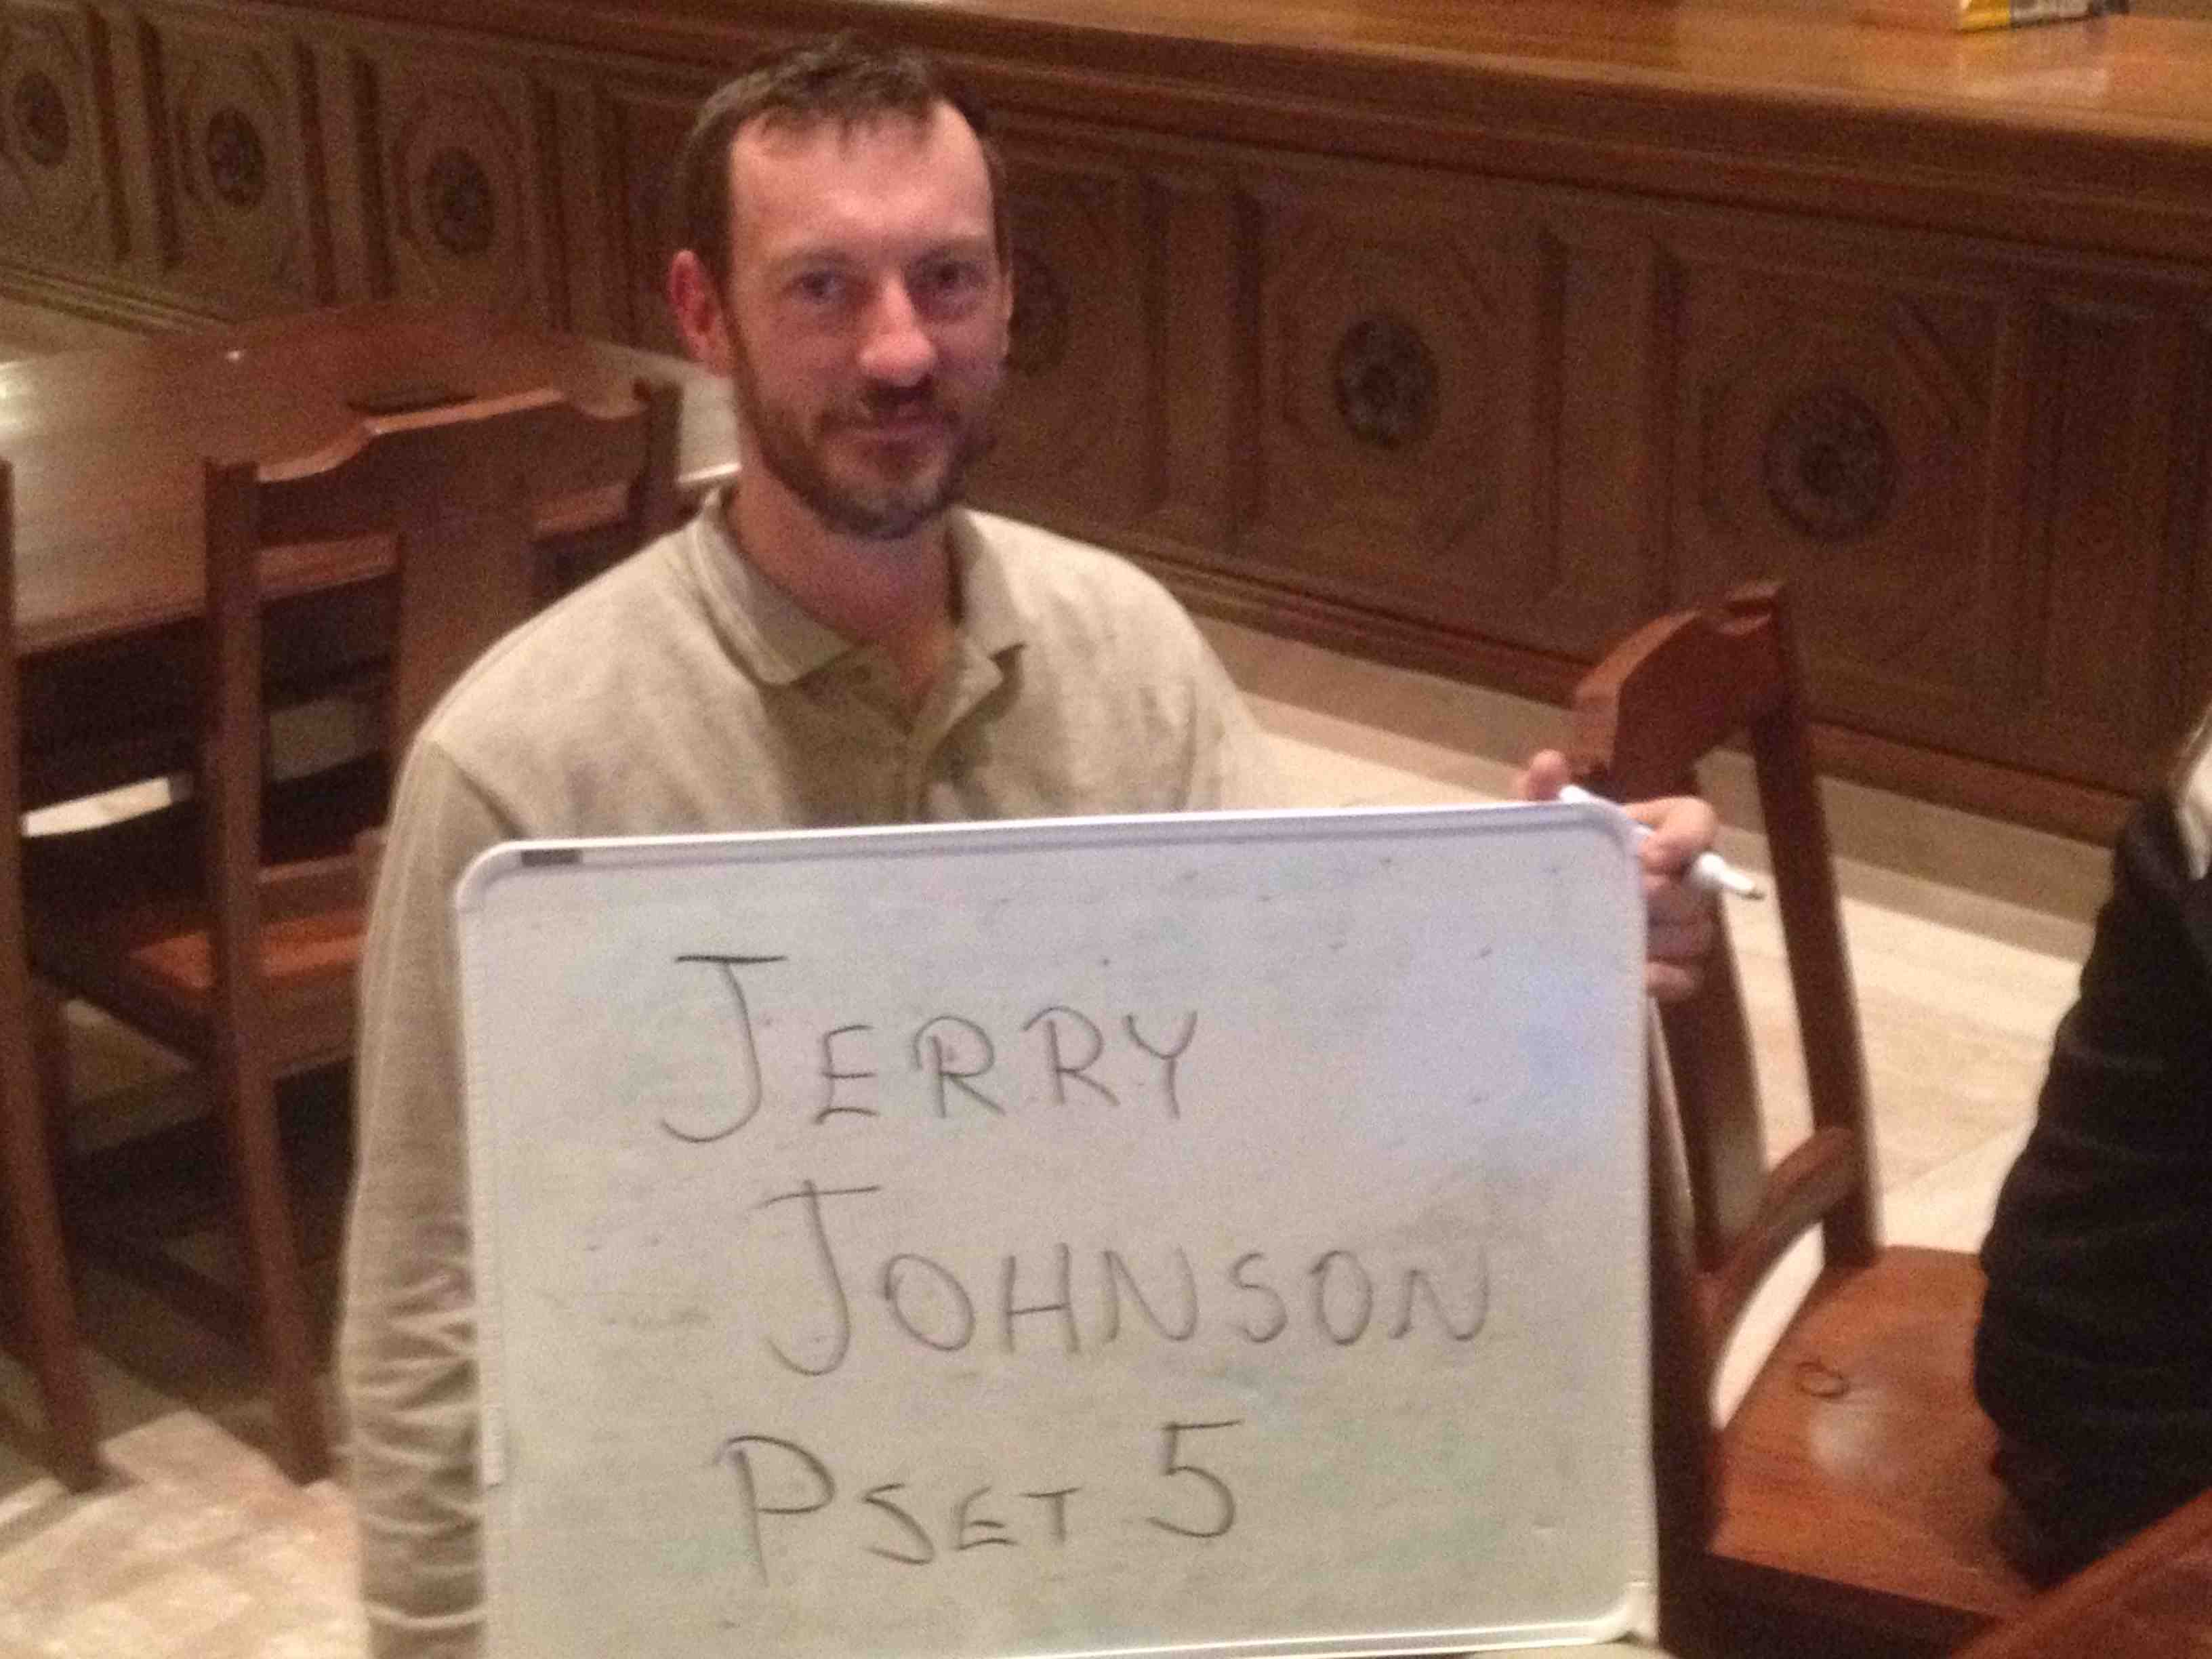 JERRY
JOHNSON
PSET 5